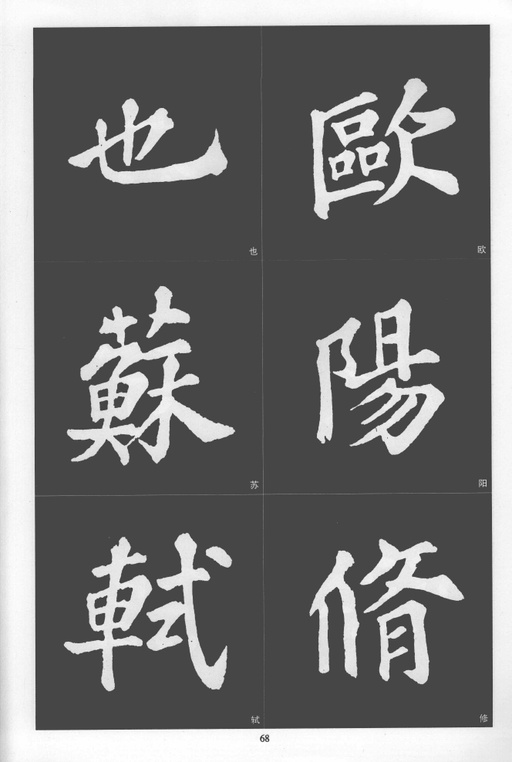 歐陽脩
欧
阳
修
也蘇軾
也
苏
轼
68